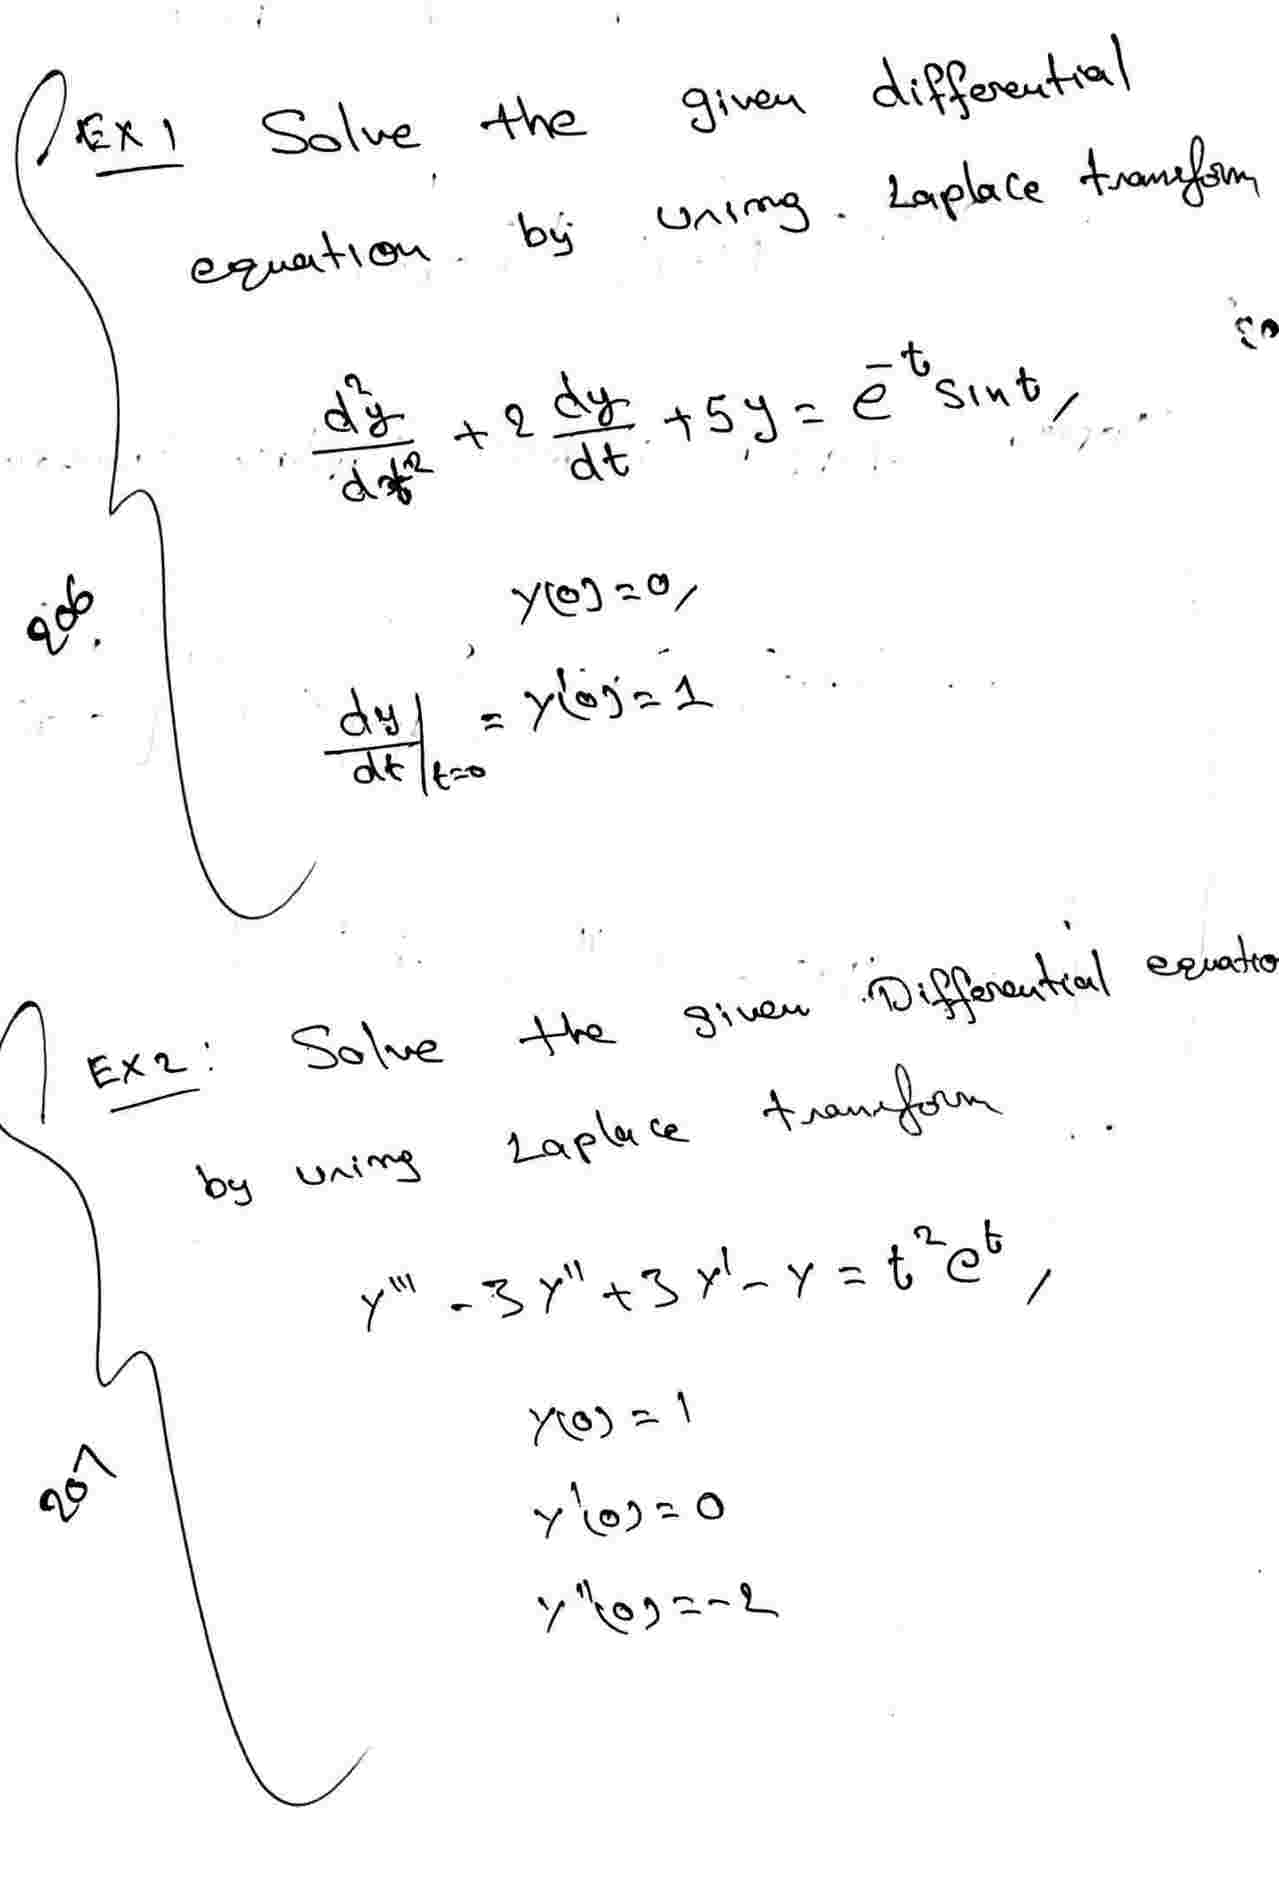 EX 1 Solve the given differential
equation by using Laplace transform
d²y/dt² + 2 dy/dt + 5y = e^-t sint,
y(0) = 0,
dy/dt|t=0 = y'(0) = 1
206
EX 2: Solve the given Differential equatio
by using Laplace transform
y''' - 3y'' + 3y' - y = t²e^t,
y(0) = 1
y'(0) = 0
y''(0) = -2
207